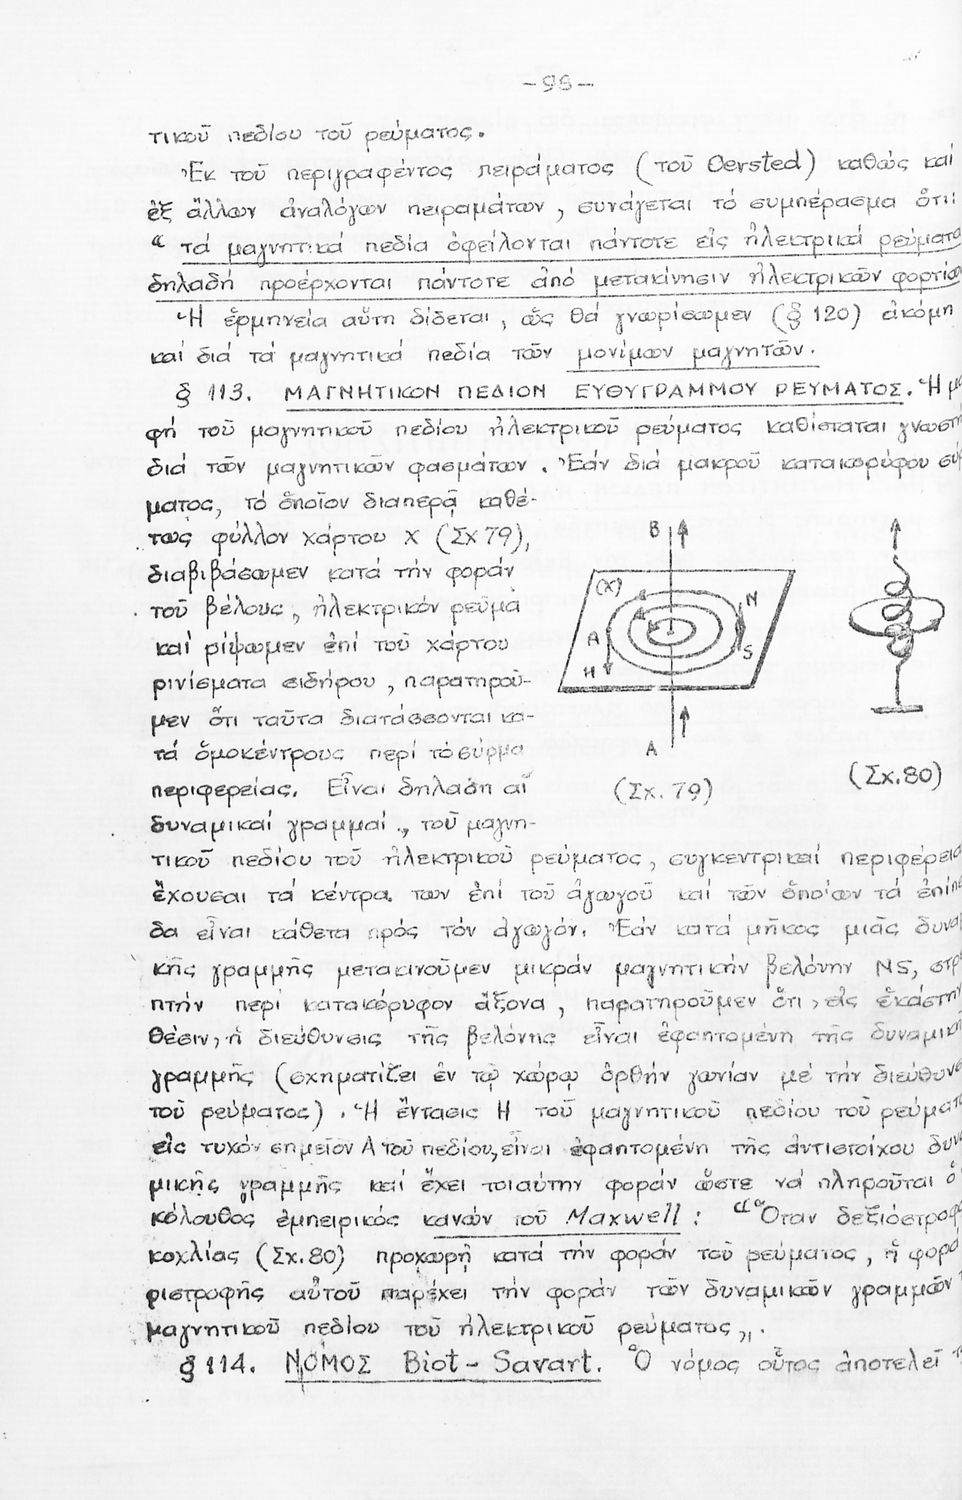 -96-
τικοῦ πεδίου τοῦ ρεύματος.
Ἐκ τοῦ περιγραφέντος πειράματος (τοῦ Oersted) καθώς καί
ἐξ ἄλλων ἀναλόγων πειραμάτων, συνάγεται τό συμπέρασμα ὅτι:
“ τά μαγνητικά πεδία ὀφείλονται πάντοτε εἰς ἠλεκτρικά ρεύματα
δηλαδή προέρχονται πάντοτε ἀπό μετακίνησιν ἠλεκτρικῶν φορτίω
Ἡ ἑρμηνεία αὕτη δίδεται, ὡς θά γνωρίσωμεν (§ 120) ἀκόμη
καί διά τά μαγνητικά πεδία τῶν μονίμων μαγνητῶν.
§ 113. ΜΑΓΝΗΤΙΚΟΝ ΠΕΔΙΟΝ ΕΥΘΥΓΡΑΜΜΟΥ ΡΕΥΜΑΤΟΣ. Ἡ μο
φή τοῦ μαγνητικοῦ πεδίου ἠλεκτρικοῦ ρεύματος καθίσταται γνωστή
διά τῶν μαγνητικῶν φασμάτων. Ἐάν διά μακροῦ κατακορύφου σύρ
ματος, τό ὁποῖον διαπερᾷ καθέ-
τως φύλλον χάρτου Χ (Σχ 79),
διαβιβάσωμεν κατά τήν φοράν
τοῦ βέλους, ἠλεκτρικόν ρεῦμα
καί ρίψωμεν ἐπί τοῦ χάρτου
ρινίσματα σιδήρου, παρατηροῦ-
μεν ὅτι ταῦτα διατάσσονται κα-
τά ὁμοκέντρους περί τό σύρμα
περιφερείας. Εἶναι δηλαδή αἱ
δυναμικαί γραμμαί, τοῦ μαγνη-
B
(X)
N
A
S
H
A
(Σχ. 79)
(Σχ. 80)
τικοῦ πεδίου τοῦ ἠλεκτρικοῦ ρεύματος, συγκεντρικαί περιφέρεια
ἔχουσαι τά κέντρα των ἐπί τοῦ ἀγωγοῦ καί τῶν ὁποίων τά ἐπίπε
δα εἶναι κάθετα πρός τόν ἀγωγόν. Ἐάν κατά μῆκος μιᾶς δυναμ
κῆς γραμμῆς μετακινοῦμεν μικράν μαγνητικήν βελόνην NS, στρε
πτήν περί κατακόρυφον ἄξονα, παρατηροῦμεν ὅτι, εἰς ἑκάστην
θέσιν, ἡ διεύθυνσις τῆς βελόνης εἶναι ἐφαπτομένη τῆς δυναμική
γραμμῆς (σχηματίζει ἐν τῷ χώρῳ ὀρθήν γωνίαν μέ τήν διεύθυνσ
τοῦ ρεύματος). Ἡ ἔντασις Η τοῦ μαγνητικοῦ πεδίου τοῦ ρεύματο
εἰς τυχόν σημεῖον Α τοῦ πεδίου, εἶναι ἐφαπτομένη τῆς ἀντιστοίχου δυνα
μικῆς γραμμῆς καί ἔχει τοιαύτην φοράν ὥστε νά πληροῦται ὁ
κόλουθος ἐμπειρικός κανών τοῦ Maxwell: “Ὅταν δεξιόστροφο
κοχλίας (Σχ. 80) προχωρῇ κατά τήν φοράν τοῦ ρεύματος, ἡ φορά
ριστροφῆς αὐτοῦ παρέχει τήν φοράν τῶν δυναμικῶν γραμμῶν
μαγνητικοῦ πεδίου τοῦ ἠλεκτρικοῦ ρεύματος,,.
§ 114. ΝΟΜΟΣ Biot - Savart. Ὁ νόμος οὗτος ἀποτελεῖ